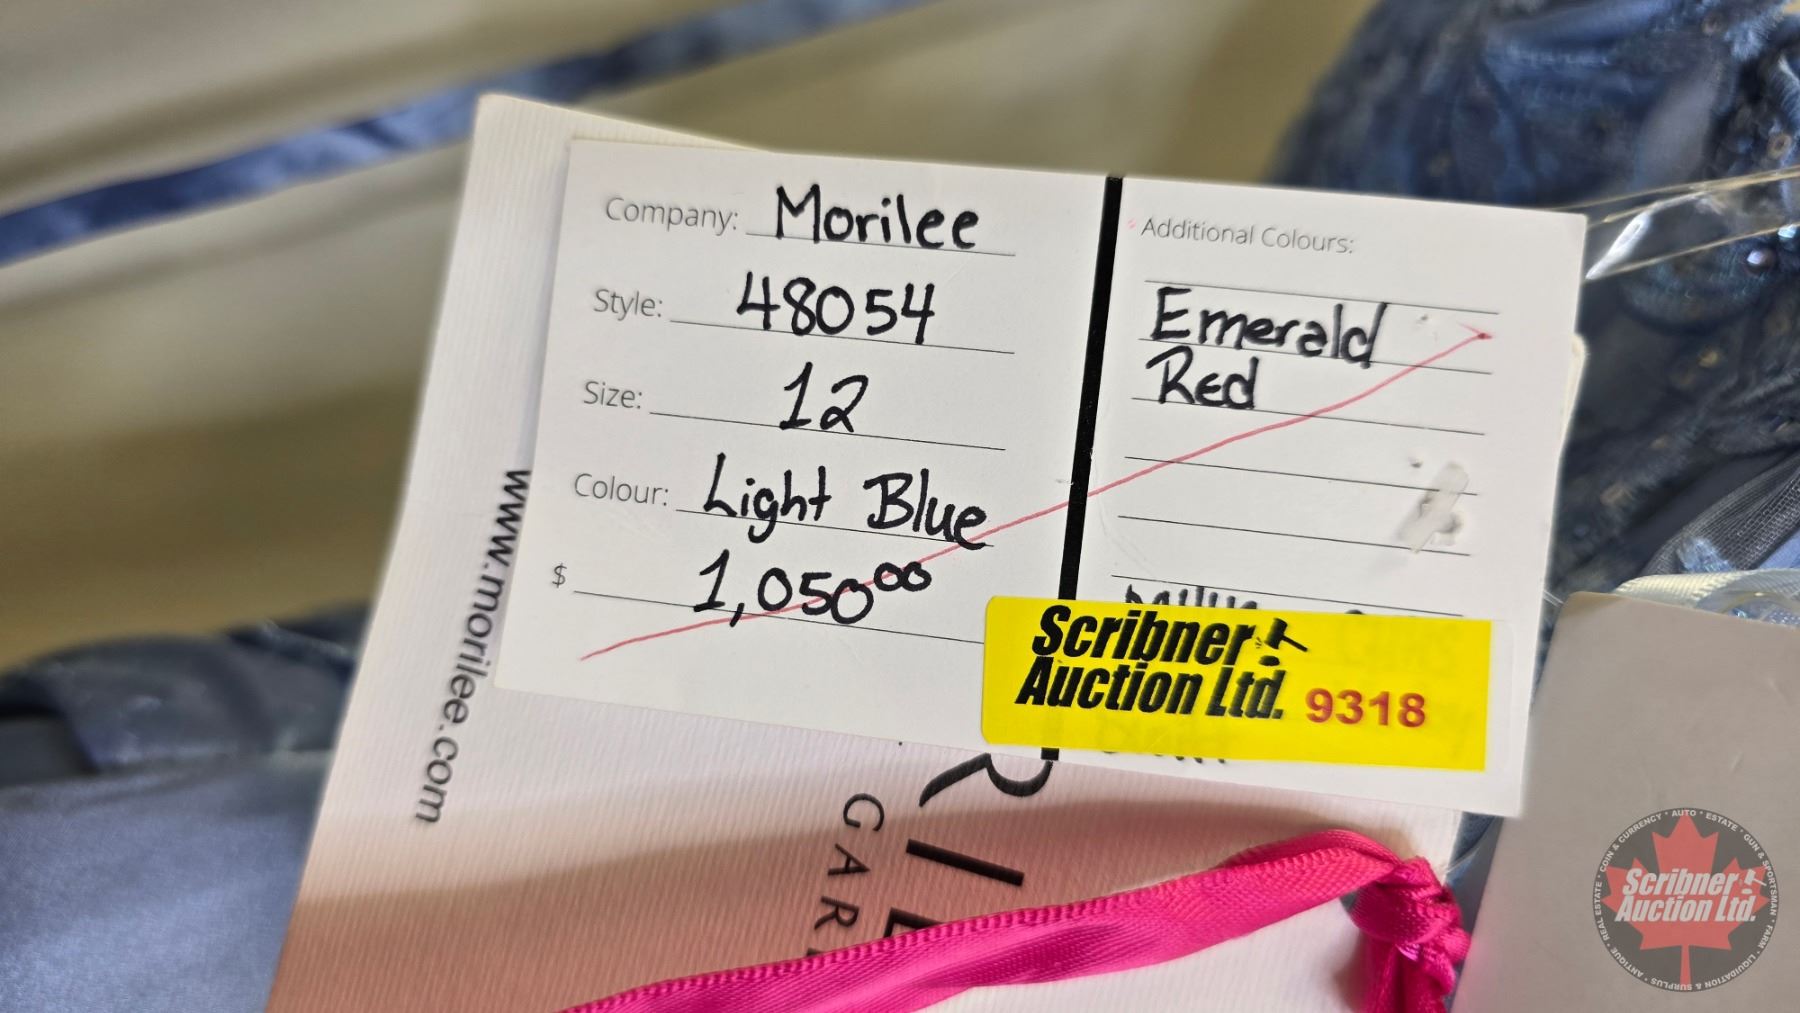 Company: Morilee
Style: 48054
Size: 12
Colour: Light Blue
$ 1,050.00
Additional Colours:
Emerald
Red
Scribner
Auction Ltd. 9318
www.morilee.com
Scribner
Auction Ltd.
COIN & CURRENCY • AUTO • ESTATE • GUN & SPORTSMAN • FARM • LIQUIDATION & SURPLUS • ANTIQUE • REAL ESTATE •